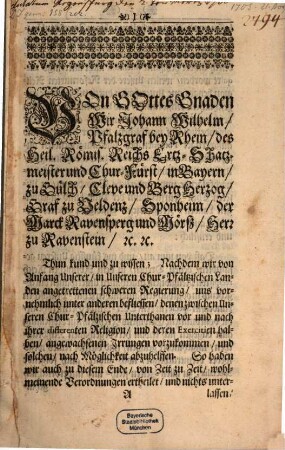 I
2494
VOn GOttes Gnaden
Wir Johann Wilhelm/
Pfalzgraf bey Rhein/ des
Heil. Römis. Reichs Ertz-Schatz-
meister und Chur-Fürst/ in Bayern/
zu Gülch/ Cleve und Berg Herzog/
Graf zu Veldenz/ Sponheim/ der
Marck Ravensperg und Mörß/ Herr
zu Ravenstein/ ꝛc. ꝛc.
Thun kund und zu wissen; Nachdem wir von
Anfang Unserer/ in Unseren Chur-Pfältzischen Lan-
den angetrettenen schweren Regierung/ uns vor-
nehmlich unter anderen beflissen/ denen zwischen Un-
seren Chur-Pfältzischen Unterthanen vor und nach
ihrer differenten Religion/ und deren Exercitien hal-
ben/ angewachsenen Irrungen vorzukommen/ und
solchen/ nach Möglichkeit abzuhelffen. So haben
wir auch zu diesem Ende/ von Zeit zu Zeit/ wohl-
meinende Verordnungen ertheilet/ und nichts unter-
A lassen/
Bayerische
Staatsbibliothek
München